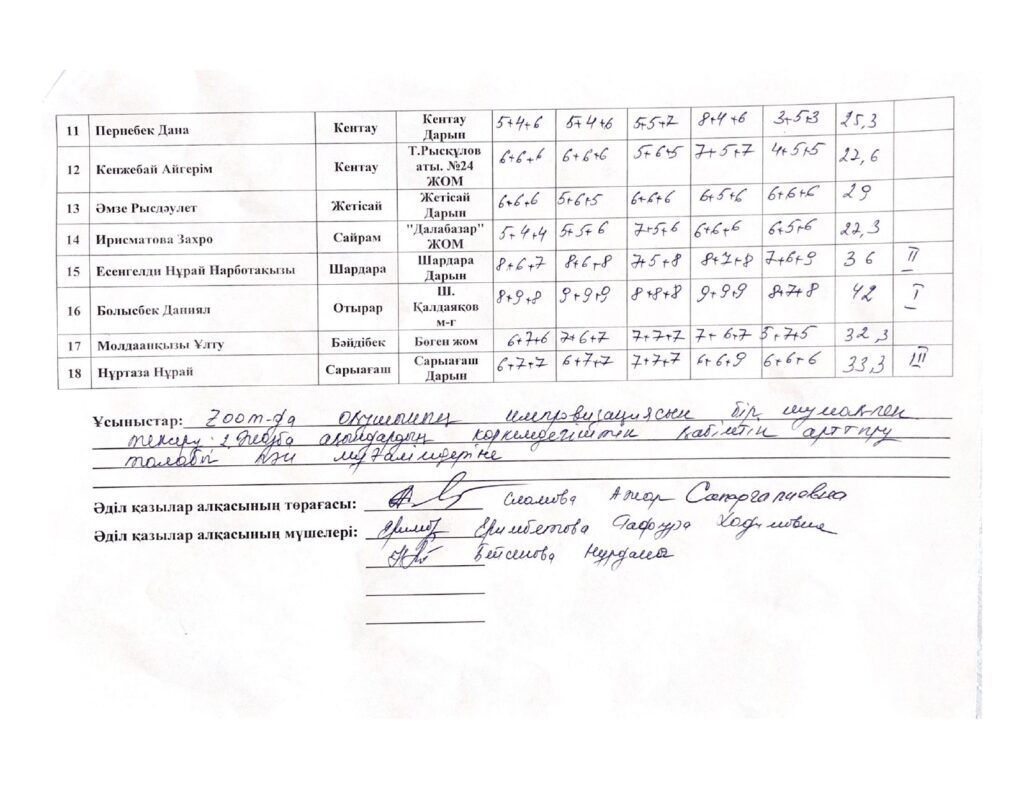 11 Пернебек Дана Кентау Кентау Дарын 5+4+6 5+4+6 5+5+7 8+4+6 3+5+3 25,3
12 Кенжебай Айгерім Кентау Т.Рысқұлов аты. №24 ЖОМ 6+6+6 6+6+6 5+6+5 7+5+7 4+5+5 27,6
13 Әмзе Рысдәулет Жетісай Жетісай Дарын 6+6+6 5+6+5 6+6+6 6+5+6 6+6+6 29
14 Ирисматова Захро Сайрам "Далабазар" ЖОМ 5+4+4 5+5+6 7+5+6 6+6+6 6+5+6 27,3
15 Есенгелди Нұрай Нарботақызы Шардара Шардара Дарын 8+6+7 8+6+8 7+5+8 8+7+8 7+6+9 36 II
16 Болысбек Даниял Отырар Ш. Қалдаяқов м-г 8+9+8 9+9+9 8+8+8 9+9+9 8+7+8 42 I
17 Молдаанқызы Ұлту Бәйдібек Бөген жом 6+7+6 7+6+7 7+7+7 7+6+7 5+7+5 32,3
18 Нұртаза Нұрай Сарыағаш Сарыағаш Дарын 6+7+7 6+7+7 7+7+7 6+6+9 6+6+6 33,3 III
Ұсыныстар: Zoom-да оқушының импровизациясын бір шумақпен
тексеру 2. ақындардың көркемдегіштік қабілетін арттыру
талабы
Әділ қазылар алқасының төрағасы: Сапарғалиевна
Әділ қазылар алқасының мүшелері: Еримбетова
Бейсенова